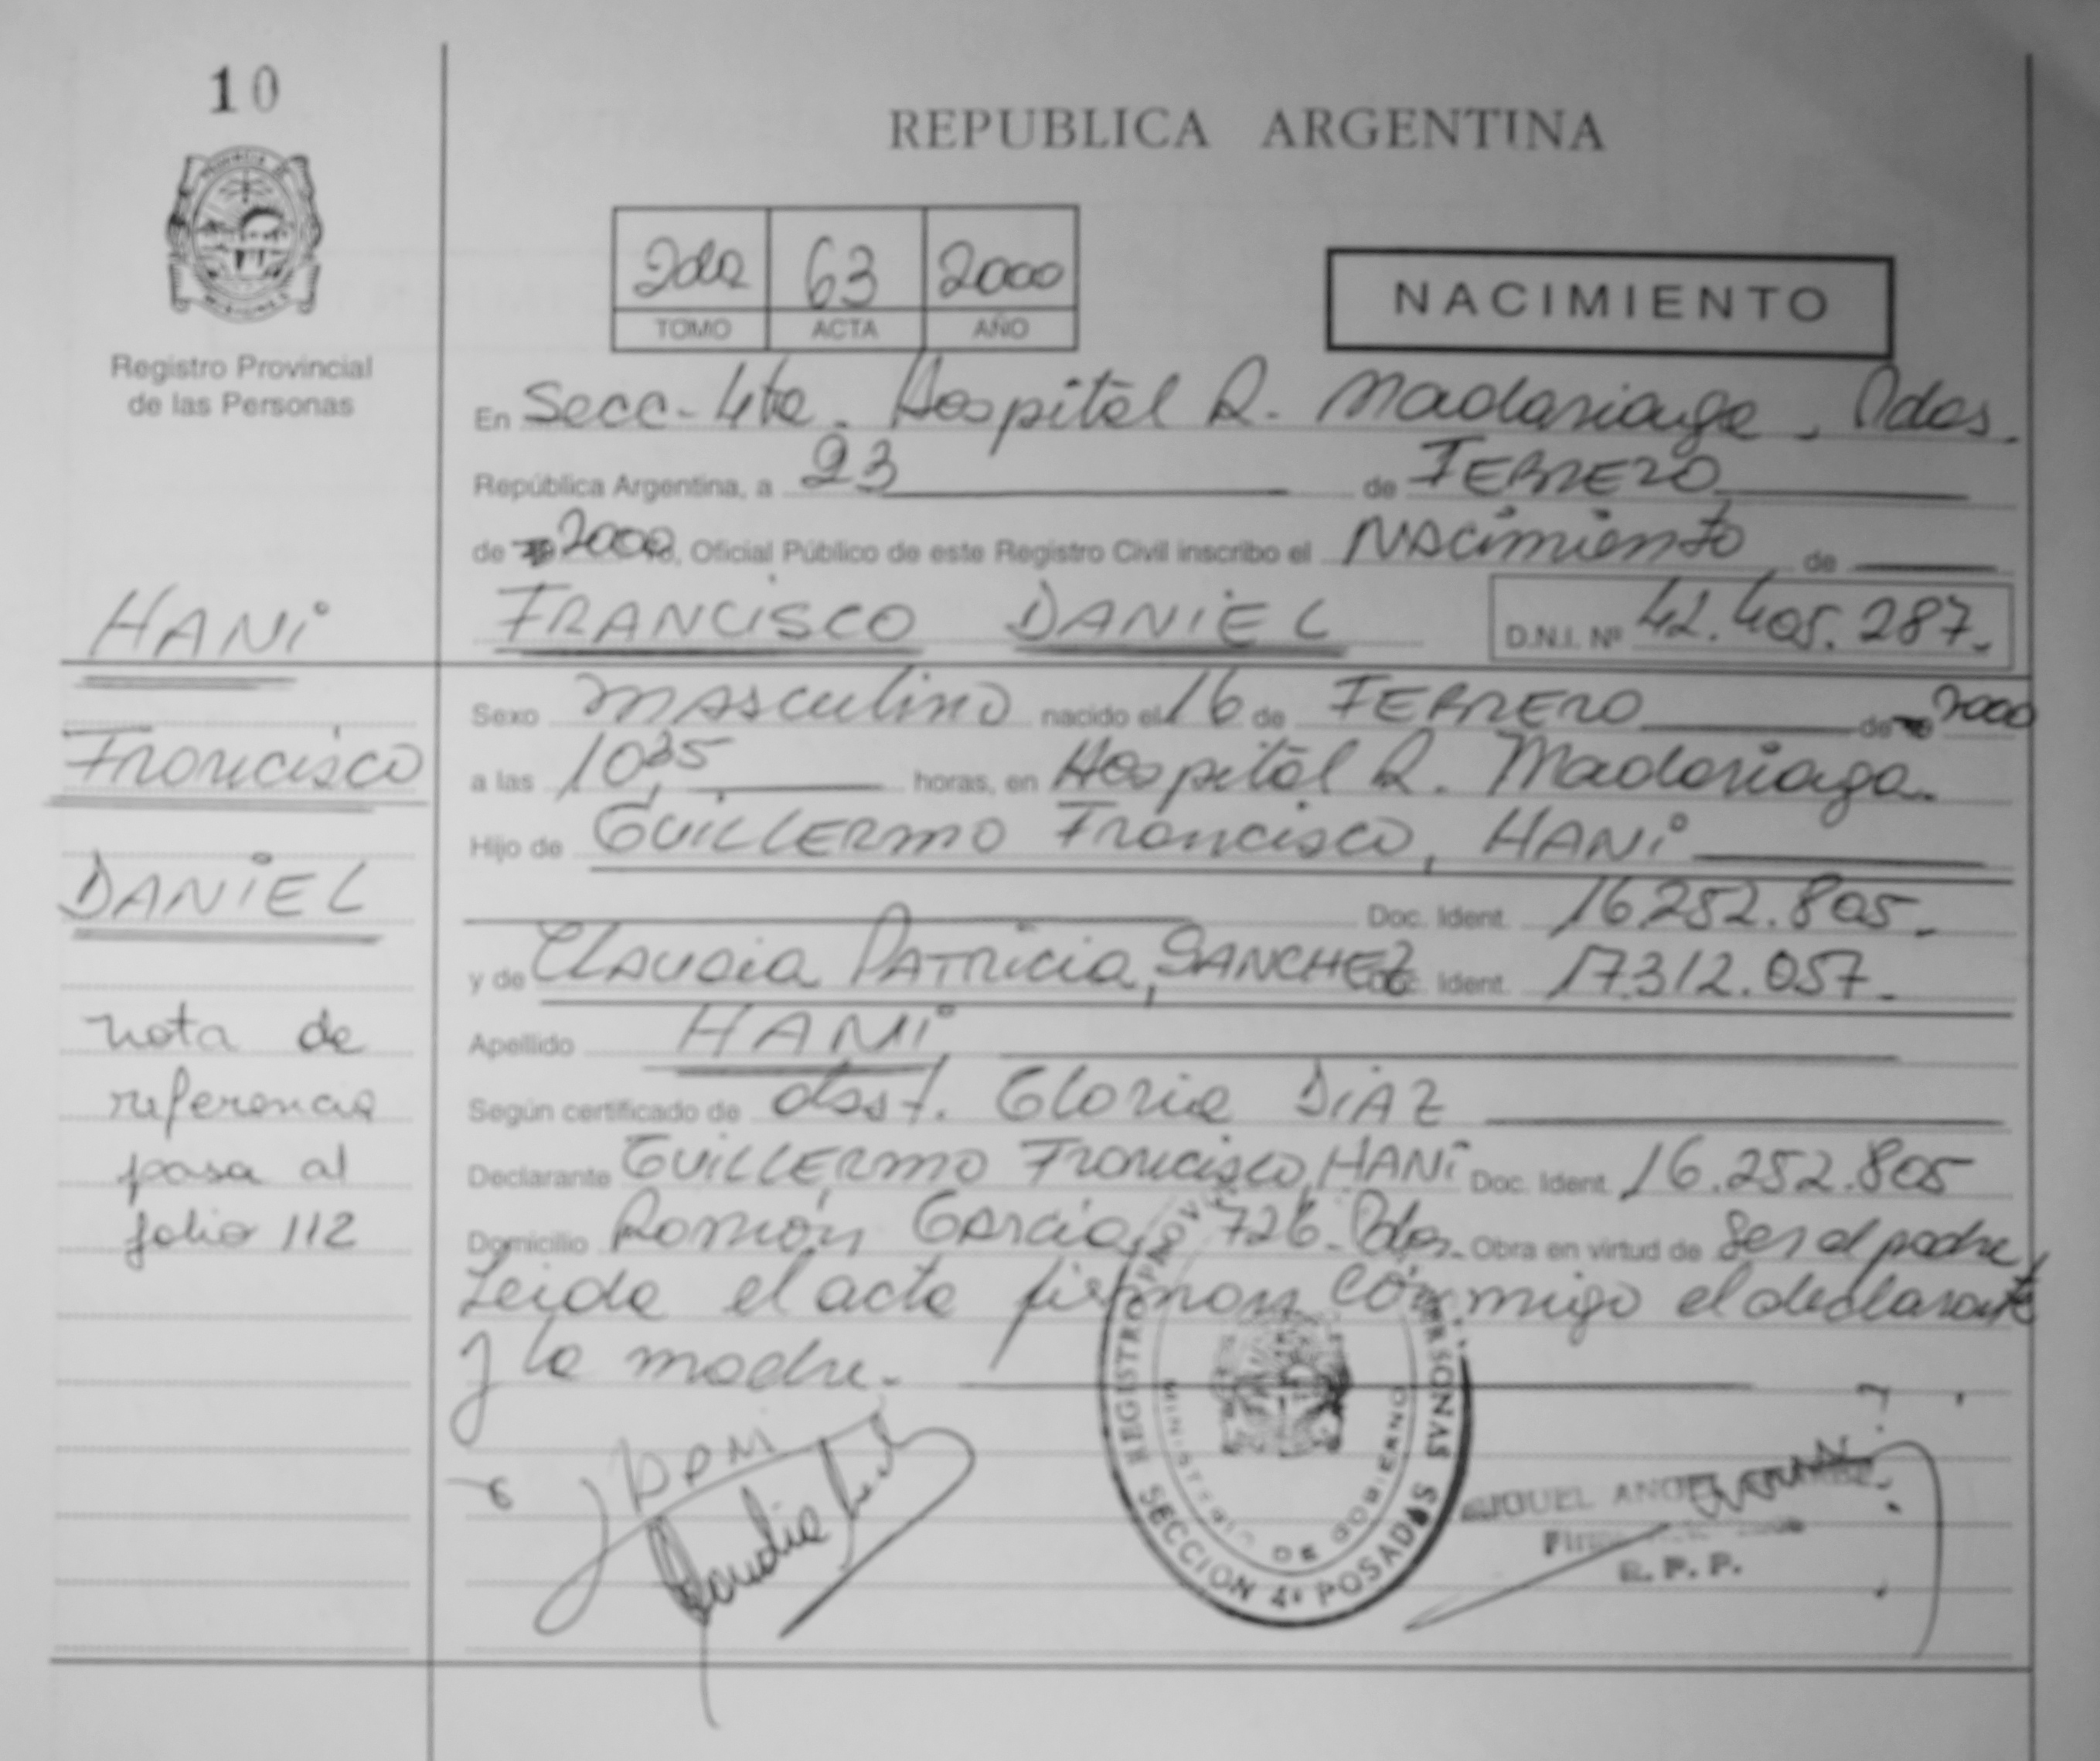 10
REPUBLICA ARGENTINA
2da 63 2000
TOMO ACTA AÑO
NACIMIENTO
Registro Provincial
de las Personas
En Secc- 4ta. Hospital R. Madariaga, Pdas.
República Argentina, a 23 de FEBRERO
de 2000, Oficial Público de este Registro Civil inscribo el NACimiento de
HANi FRANCiSCO DANiEL D.N.I. Nº 42.405.287.
Sexo MASculino nacido el 16 de FEBRERO de 2000
Francisco
a las 10,35 horas, en Hospital R. Madariaga.
Hijo de GUiLLERMO Francisco, HANi
DANiEL
Doc. Ident. 16.252.805.
y de CLAUDia PATRicia, SANCHEZ Doc. Ident. 17.312.057.
nota de
Apellido HANi
referencia
Según certificado de obst. Gloria DiAZ
pasa al
Declarante GUiLLERMO Francisco, HANi Doc. Ident. 16.252.805
folio 112
Domicilio Ramón García 726. Pdas. Obra en virtud de ser el padre,
Leida el acta firman conmigo el declarante
y la madre.
REGISTRO PROV PERSONAS
MINISTERIO DE GOBIERNO
SECCION 4ª POSADAS
Claudia
MIGUEL ANGEL
R. P. P.